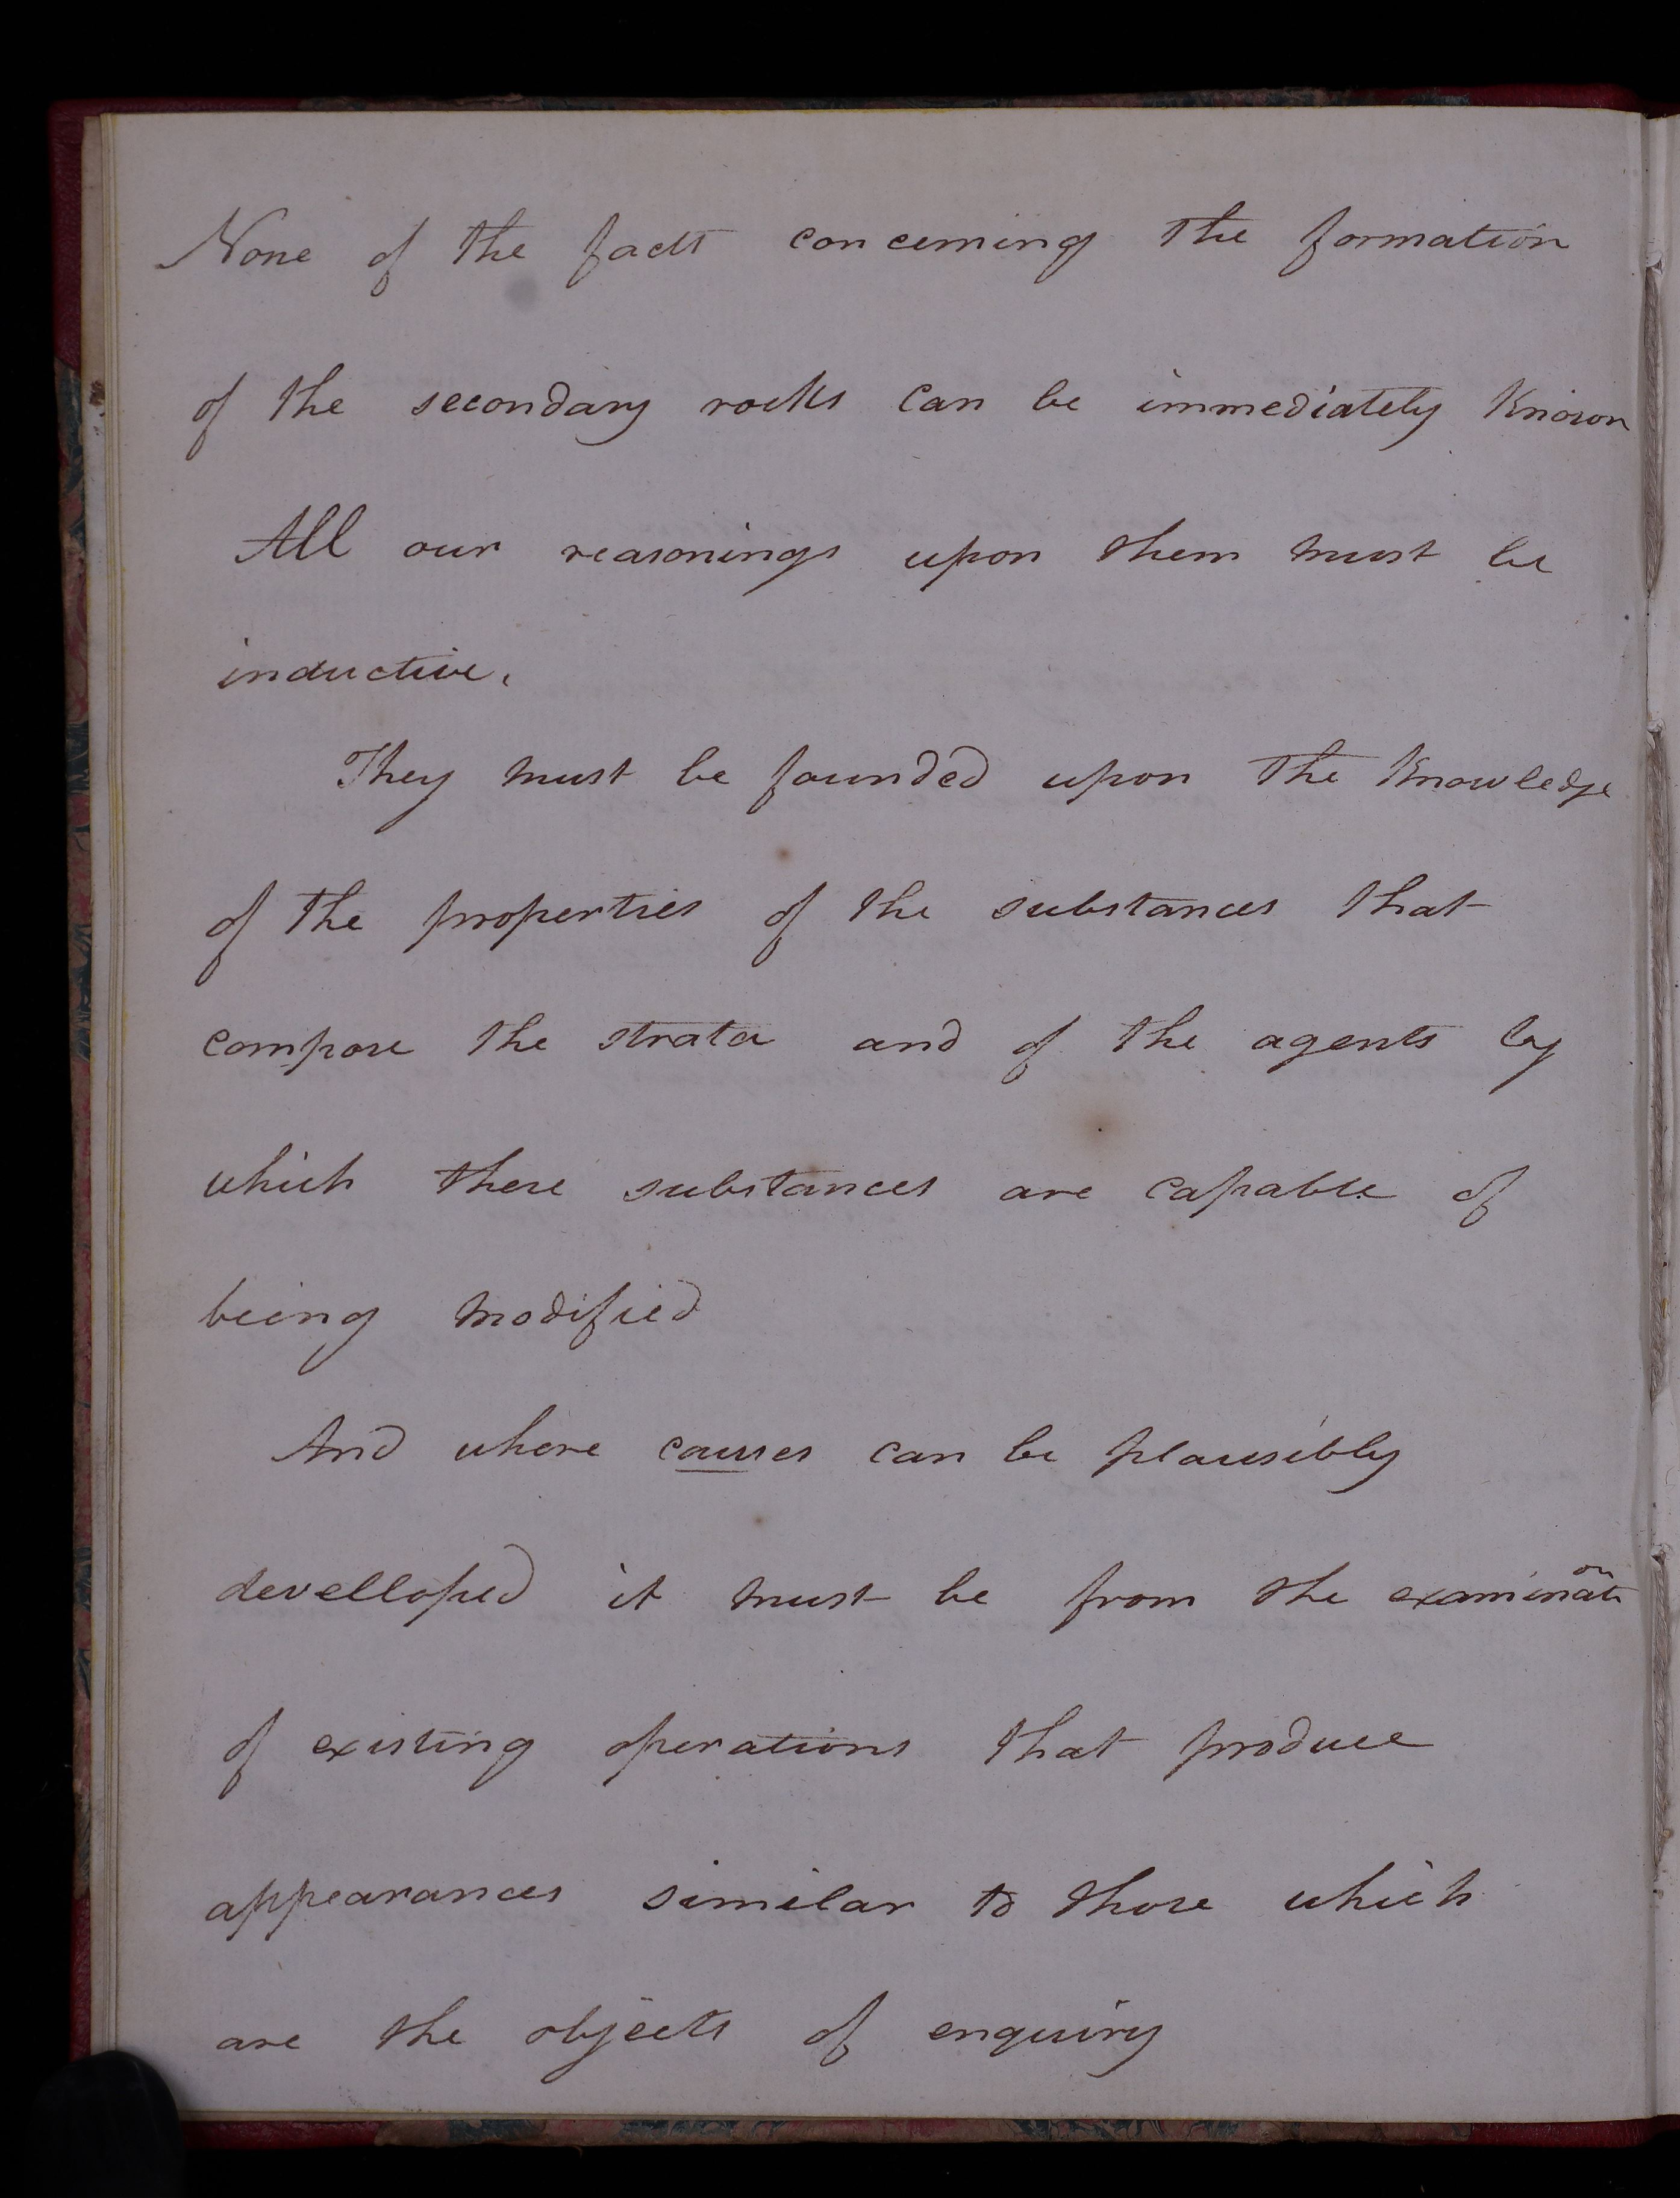 None of the facts concerning the formation
of the secondary rocks can be immediately Known
All our reasonings upon them must be
inductive.
They must be founded upon the Knowledge
of the properties of the substances that
compose the strata and of the agents by
which these substances are capable of
being modified
And where causes can be plausibly
develloped it must be from the examination
of existing operations that produce
appearances similar to those which
are the objects of enquiry